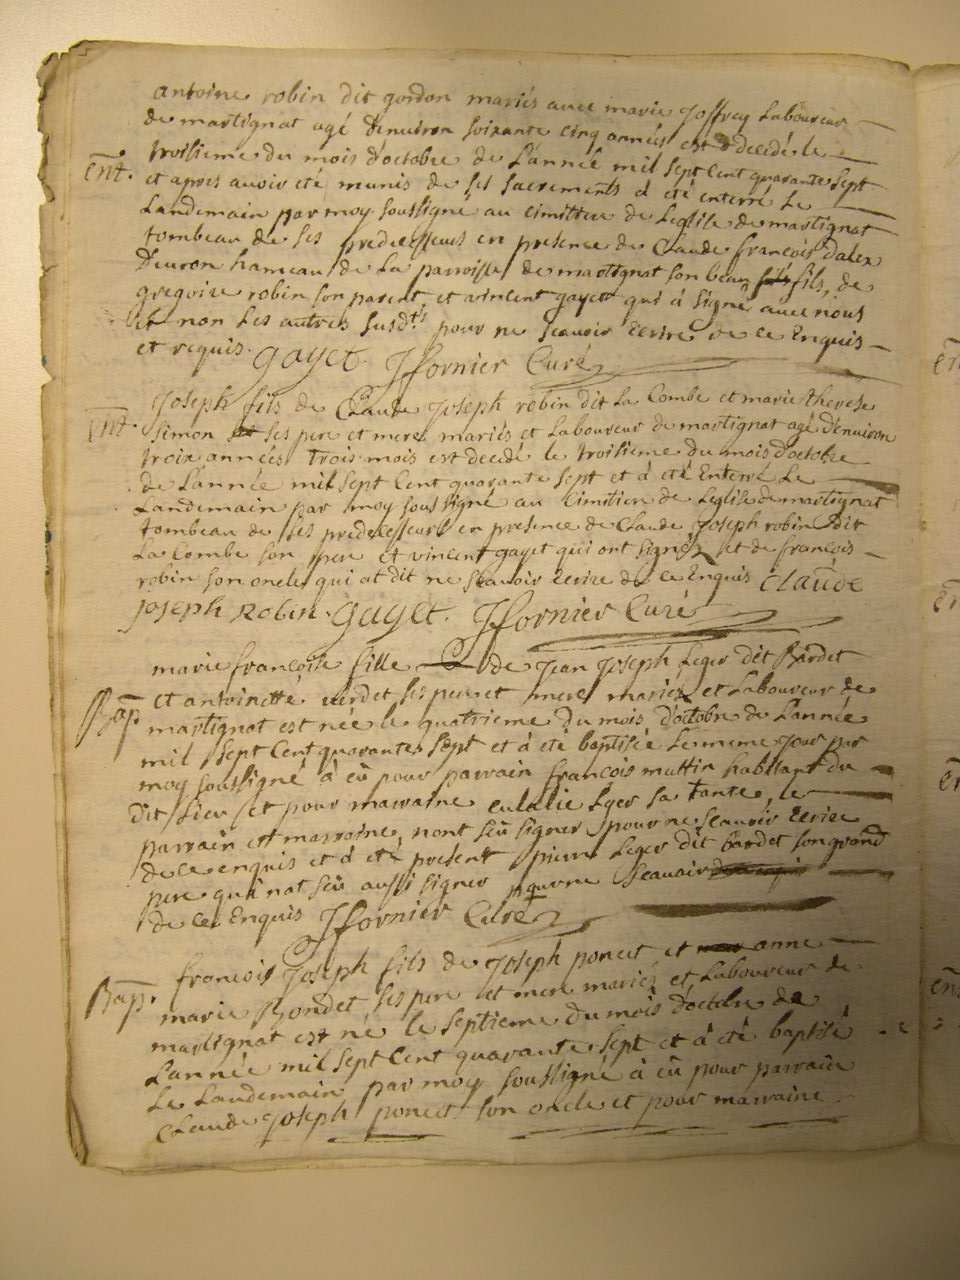 antoine robin dit gordon mariés avec marie Joffrey Laboureur
de martignat agé denuiron soixante cinq années est decedé le
Ent. troisieme du mois d'octobre de L'année mil sept cent quarante sept
et apres auoir eté munis de ses sacrements a eté enterré Le
Landemain par moy soussigné au cimittiere de Leglise de martignat
tombeau de ses predecesseurs en presence de Claude françois dalex
Deuron hameau de La parroisse de martignat son beau fils, de
gregoire robin son parent, et vincent gayet qui à signé auec nous
et non Les autres susdts pour ne sçauoir Ecrire de ce Enquis
et requis. Gayet. Jfornier Curé
Ent. Joseph fils de Claude Joseph robin dit La Combe et marie therese
Simon ses pere et mere mariés et Laboureur de martignat agé d'enuiron
troix années trois mois est decedé le troisieme du mois d'octobre
de L'année mil sept Cent quarante sept et à eté Enterré Le
Landemain par moy soussigné au Cimitiere de Leglise de martignat
tombeau de ses predecesseurs en presence de Claude Joseph robin dit
La Combe son pere et vincent gayet qui ont signéz et de francois
robin son oncle qui at dit ne Sçauoir Ecrire de ce Enquis Claude
Joseph Robin. Gayet. Jfornier Curé
marie francoise fille de Jean Joseph Leger dit Bardet
Bap. et antoinette verdet ses pere et mere mariéz et Laboureur de
martignat est née le quatrieme du mois d'octobre de L'année
mil sept Cent quarante sept et à eté baptisée Le meme Jour par
moy soussigné à eû pour parrain francois muttin habitant du
dit Lieu et pour marraine eulalie Leger sa tante, le
parrain et marraine nont sçû signer pour ne Sçauoir Ecrire
de ce enquis et à eté present pierre Leger dit bardet son grand
pere qui nat sçû aussi signer pour ne Sçauoir
de ce Enquis Jfornier Curé
Bap. francois Joseph fils de Joseph poncet et anne
marie Bondet ses pere et mere mariéz et Laboureur de
martignat est né le septieme du mois d'octobre de
L'année mil sept Cent quarante sept et à eté baptisé
Le Landemain par moy soussigné à eû pour parrain
Claude Joseph poncet son oncle et pour marraine